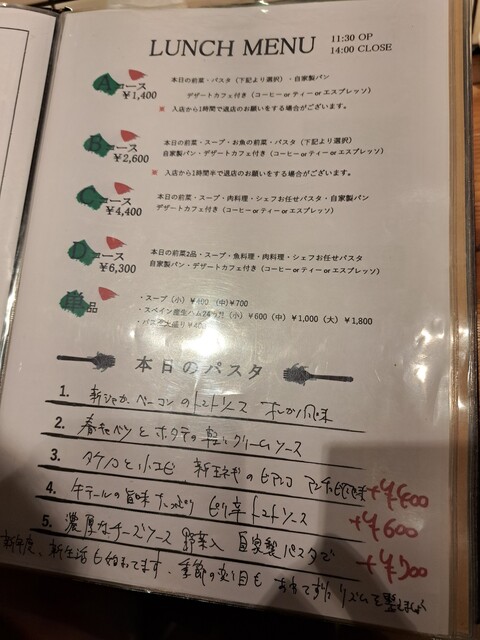 LUNCH MENU
11:30 OP
14:00 CLOSE
Aコース
¥1,400
本日の前菜・パスタ（下記より選択）・自家製パン
デザートカフェ付き（コーヒー or ティー or エスプレッソ）
※ 入店から1時間で退店のお願いをする場合がございます。
Bコース
¥2,600
本日の前菜・スープ・お魚の前菜・パスタ（下記より選択）
自家製パン・デザートカフェ付き（コーヒー or ティー or エスプレッソ）
※ 入店から1時間半で退店のお願いをする場合がございます。
コース
¥4,400
本日の前菜・スープ・肉料理・シェフお任せパスタ・自家製パン
デザートカフェ付き（コーヒー or ティー or エスプレッソ）
Dコース
¥6,300
本日の前菜2品・スープ・魚料理・肉料理・シェフお任せパスタ
自家製パン・デザートカフェ付き（コーヒー or ティー or エスプレッソ）
単品
・スープ（小）¥400 （中）¥700
・スペイン産生ハム24ヶ月（小）¥600（中）¥1,000（大）¥1,800
・パスタ大盛り
本日のパスタ
1. 新じゃが、ベーコンのトマトソース 風味
2. 春キャベツとホタテの軽いクリームソース
3. タケノコと小エビ 新玉ネギのビアンコ アンチョビ風味 +¥400
4. 牛テールの旨味たっぷり ピリ辛トマトソース +¥600
5. 濃厚なチーズソース 野菜入 自家製パスタで +¥700
新年度、新生活も始まってます、季節の変り目も リズムを整えましょ